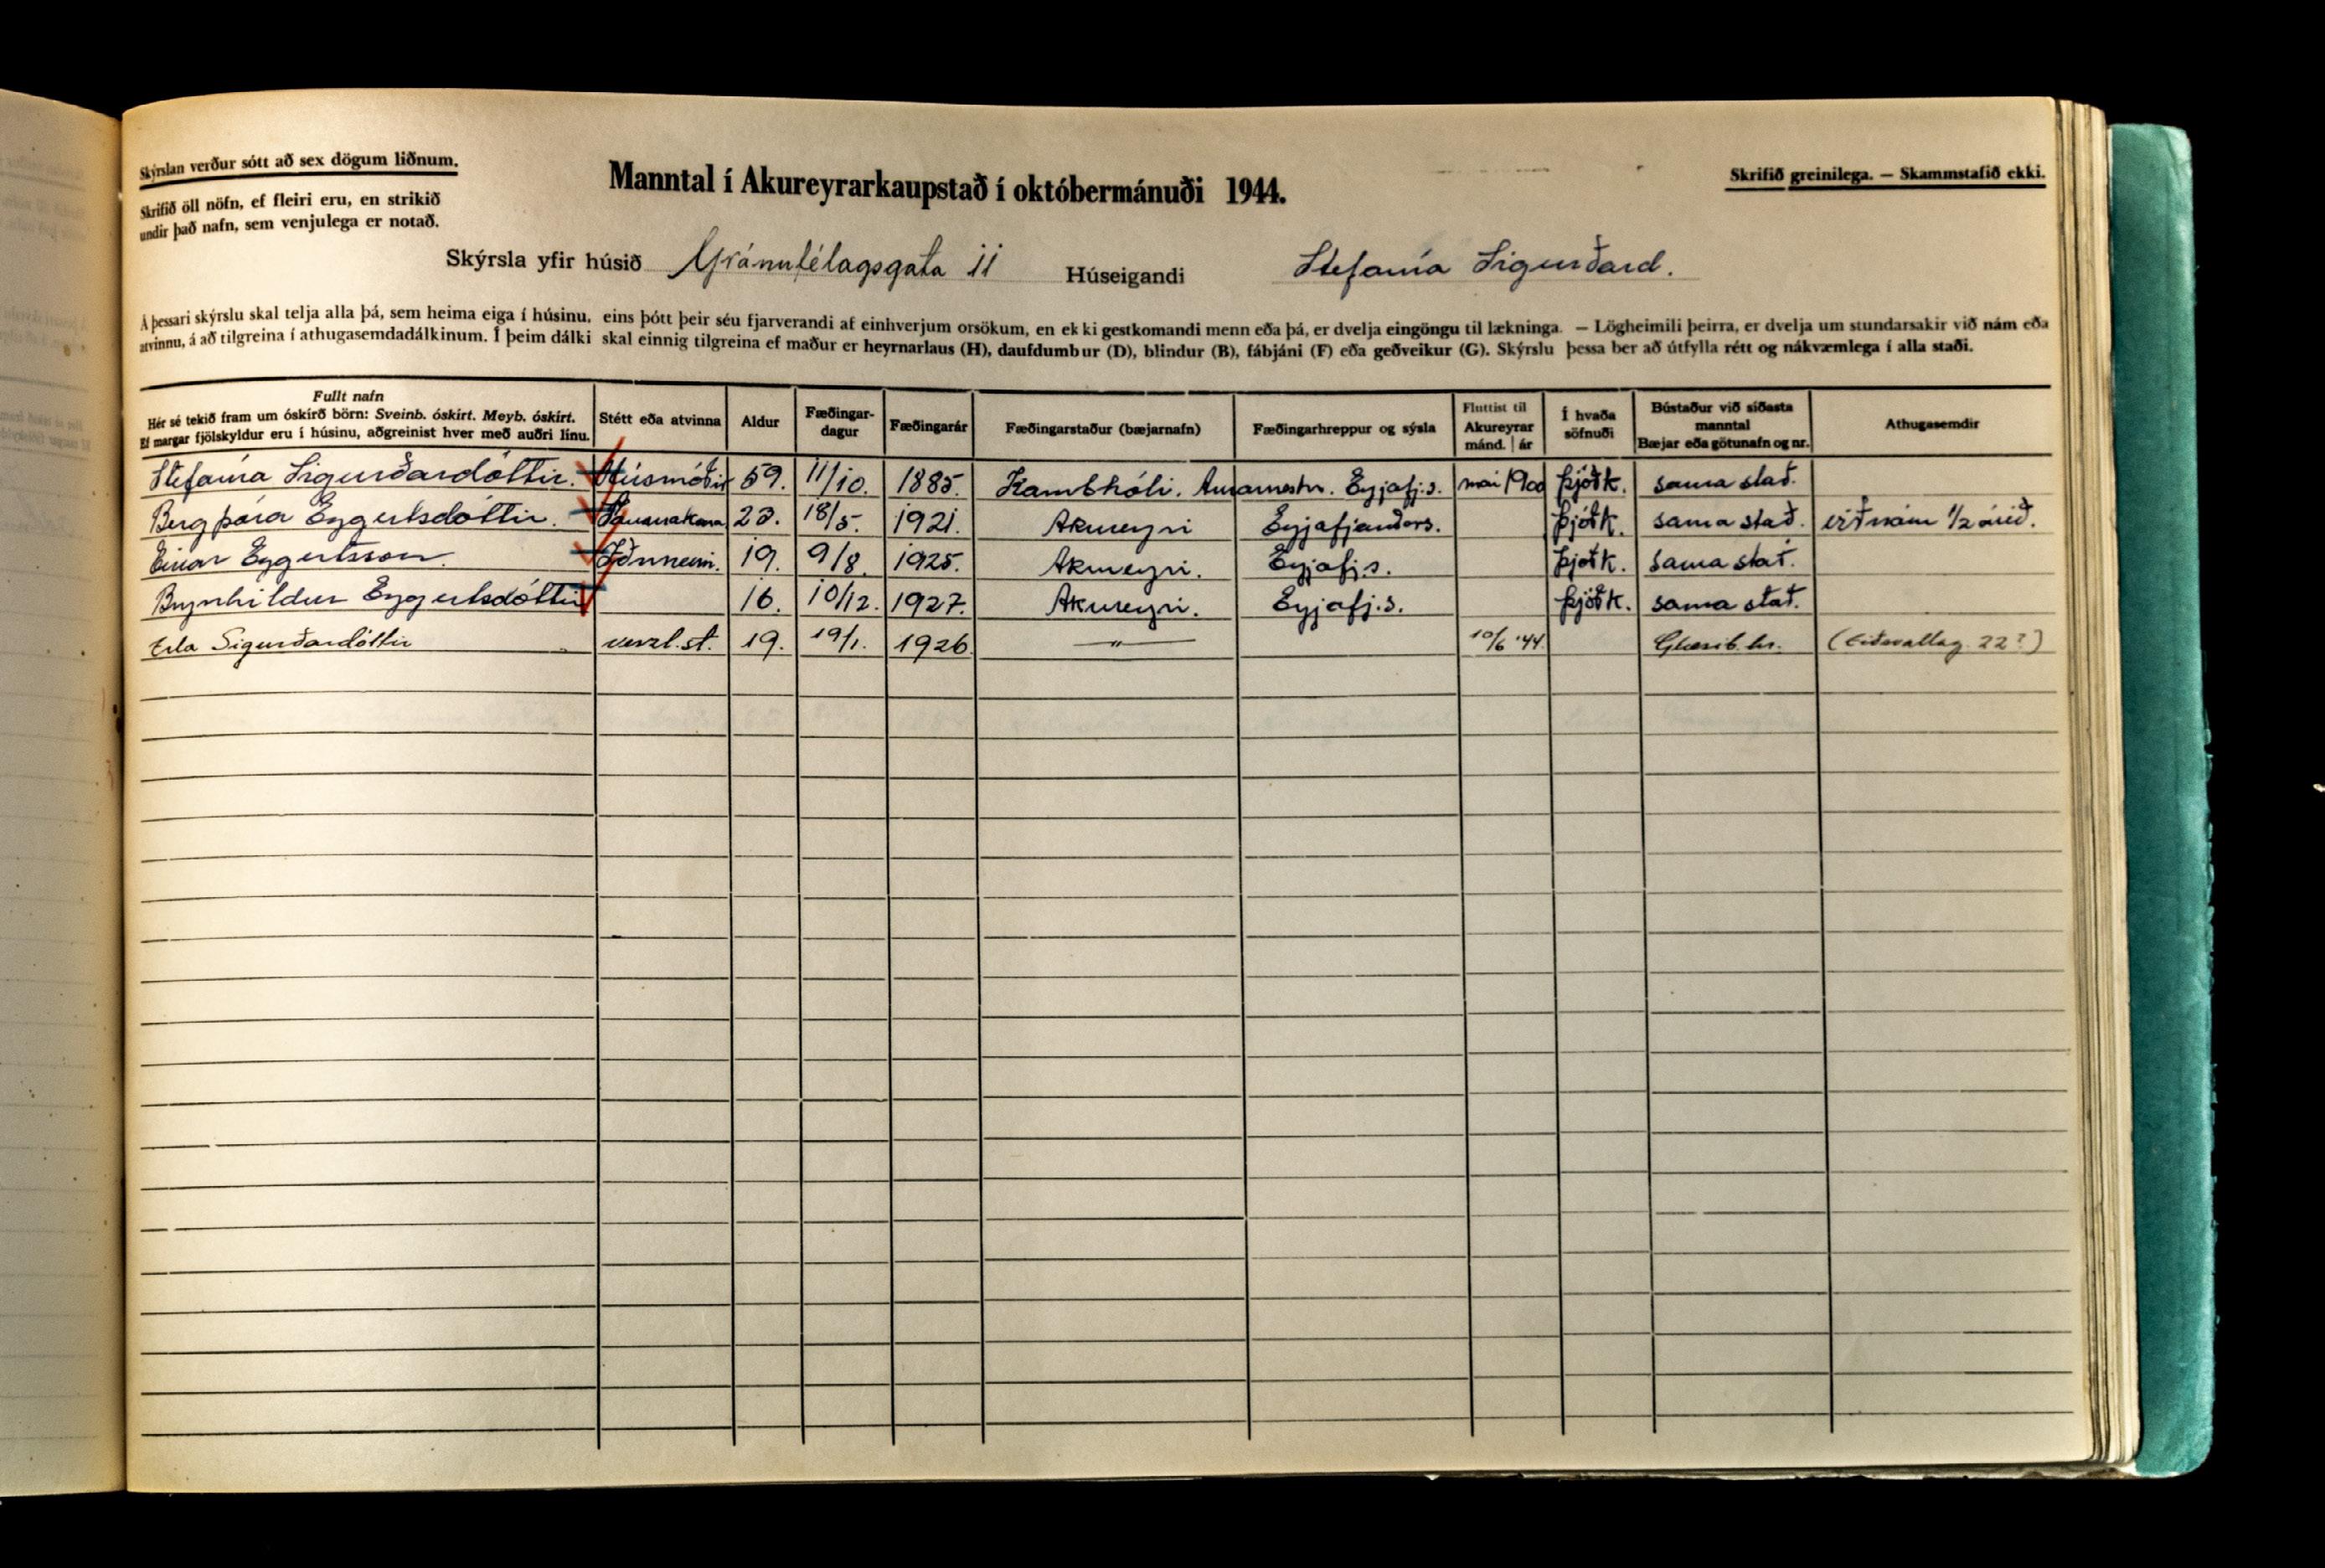 Skýrslan verður sótt að sex dögum liðnum.
Skrifið öll nöfn, ef fleiri eru, en strikið
undir það nafn, sem venjulega er notað.
Manntal í Akureyrarkaupstað í októbermánuði 1944.
Skrifið greinilega. — Skammstafið ekki.
Skýrsla yfir húsið Gránufélagsgata 11 Húseigandi Stefanía Sigurðard.
Á þessari skýrslu skal telja alla þá, sem heima eiga í húsinu, eins þótt þeir séu fjarverandi af einhverjum orsökum, en ekki gestkomandi menn eða þá, er dvelja eingöngu til lækninga. — Lögheimili þeirra, er dvelja um stundarsakir við nám eða
atvinnu, á að tilgreina í athugasemdadálkinum. Í þeim dálki skal einnig tilgreina ef maður er heyrnarlaus (H), daufdumbur (D), blindur (B), fábjáni (F) eða geðveikur (G). Skýrslu þessa ber að útfylla rétt og nákvæmlega í alla staði.
Fullt nafn
Hér sé tekið fram um óskírð börn: Sveinb. óskírt. Meyb. óskírt.
Ef margar fjölskyldur eru í húsinu, aðgreinist hver með auðri línu.
Stétt eða atvinna
Aldur
Fæðingar-
dagur
Fæðingarár
Fæðingarstaður (bæjarnafn)
Fæðingarhreppur og sýsla
Fluttist til
Akureyrar
mánd. | ár
Í hvaða
söfnuði
Bústaður við síðasta
manntal
Bæjar eða götunafn og nr.
Athugasemdir
Stefanía Sigurðardóttir. Húsmóðir 59. 11/10. 1885. Kambhóli. Arnarneshr. Eyjafj.s. maí 1900 Þjóðk. sama stað.
Bergþóra Eggertsdóttir. 23. 18/5. 1921. Akureyri Eyjafjarðars. Þjóðk. sama stað. við nám 1/2 árið.
Einar Eggertsson. Iðnnemi. 19. 9/8. 1925. Akureyri. Eyjafj.s. Þjóðk. sama stað.
Brynhildur Eggertsdóttir 16. 10/12. 1927. Akureyri. Eyjafj.s. Þjóðk. sama stað.
Erla Sigurðardóttir verzl.st. 19. 19/1. 1926 — " — 10/6 '44. Glæsib.hr. (Eiðsvallag. 22?)